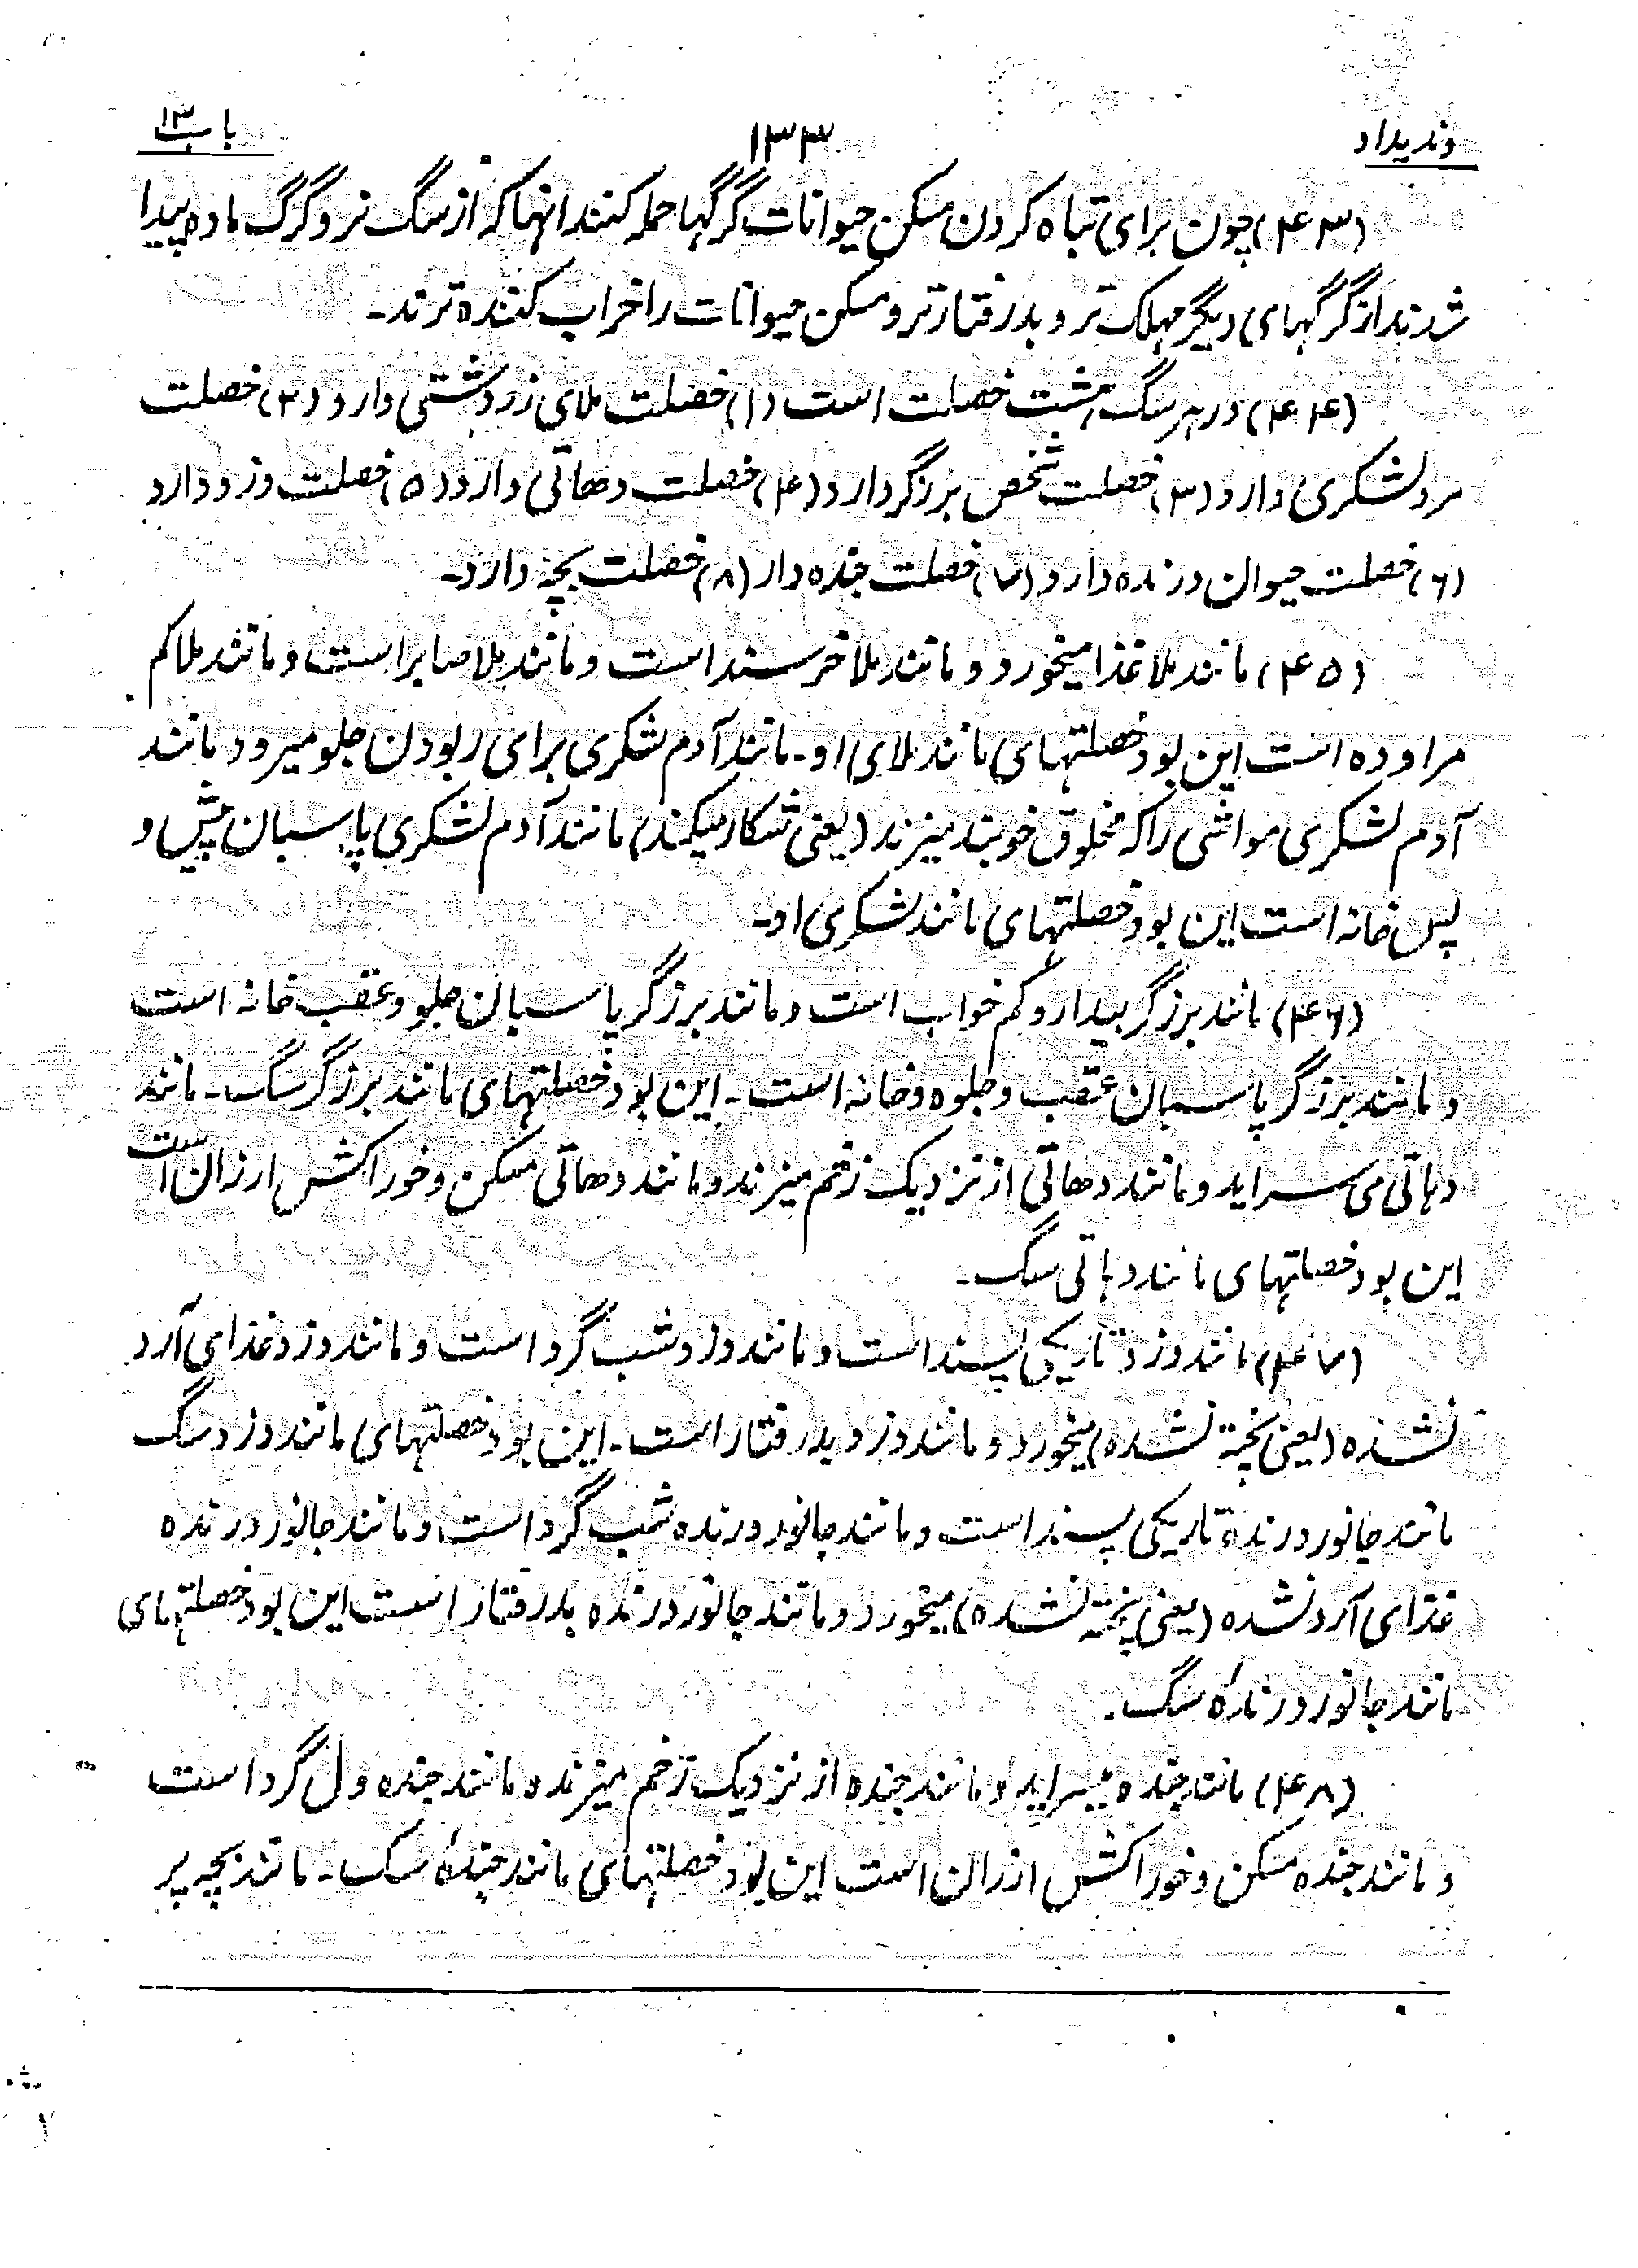 وندیداد
۱۳۳
باب ۱۳
(۴۳) چون برای تباه کردن مسکن حیوانات گرگها حمله کنند انها که از سگ نر و گرگ ماده پیدا
شدند از گرگهای دیگر مهلک تر و بدرفتارتر و مسکن حیوانات را خراب کننده ترند-
(۴۴) در هر سگ هشت خصلت است (۱) خصلت ملای زردشتی دارد (۲) خصلت
مرد لشکری دارد (۳) خصلت شخص برزگر دارد (۴) خصلت دهاتی دارد (۵) خصلت دزد دارد
(۶) خصلت حیوان درنده دارد (۷) خصلت جنده دار (۸) خصلت بچه دارد-
(۴۵) مانند ملا غذا میخورد و مانند ملا خرسند است و مانند ملا صابر است و مانند ملا کم
مراوده است این بود خصلتهای مانند ملای او- مانند آدم لشکری برای ربودن جلو میرود مانند
آدم لشکری مواشی را که مخلوق خوبند میزند (یعنی شکار میکند) مانند آدم لشکری پاسبان پیش و
پس خانه است این بود خصلتهای مانند لشکری او-
(۴۶) مانند برزگر بیدار و کم خواب است و مانند برزگر پاسبان جلو و عقب خانه است
و مانند برزگر پاسبان عقب و جلوه و خانه است- این بود خصلتهای مانند برزگر سگ- مانند
دهاتی می سراید و مانند دهاتی از نزدیک زخم میزند و مانند دهاتی مسکن و خوراکش ارزان است
این بود خصلتهای مانند دهاتی سگ-
(۴۷) مانند دزد تاریکی پسند است و مانند دزد شب گرد است و مانند دزد غذا می آرد
نشده (یعنی پخته نشده) میخورد و مانند دزد بدرفتار است- این بود خصلتهای مانند دزد سگ
مانند جانور درندۀ تاریکی پسند است و مانند جانور درنده شب گرد است و مانند جانور درنده
غذای آرد نشده (یعنی پخته نشده) میخورد و مانند جانور درنده بدرفتار است این بود خصلتهای
مانند جانور درنده سگ-
(۴۸) مانند جنده میسراید و مانند جنده از نزدیک زخم میزنده مانند جنده ول گرد است
و مانند جنده مسکن و خوراکش ارزان است این بود خصلتهای مانند جنده سگ- مانند بچه پر